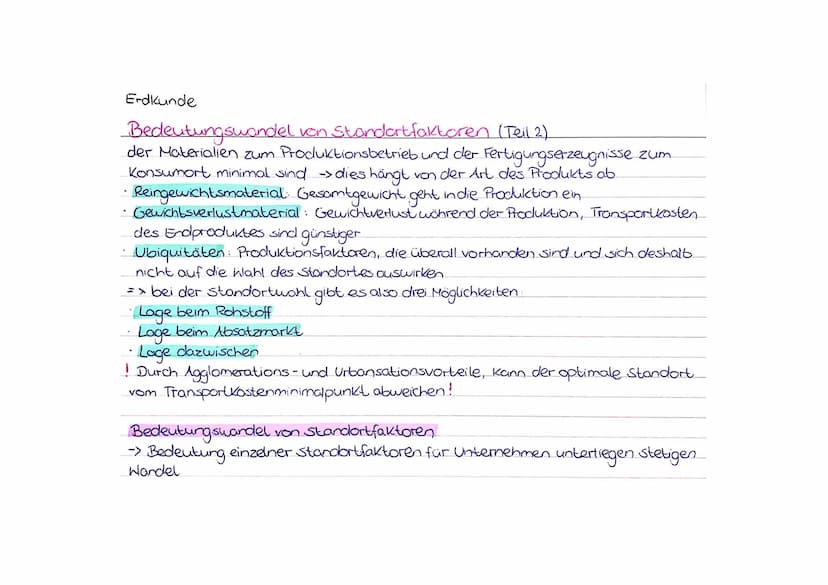 Erdkunde
Bedeutungswandel von Standortfaktoren (Teil 2)
der Materialien zum Produktionsbetrieb und der Fertigungserzeugnisse zum
Konsumort minimal sind -> dies hängt von der Art des Produkts ab
· Reingewichtsmaterial: Gesamtgewicht geht in die Produktion ein
· Gewichtsverlustmaterial: Gewichtverlust während der Produktion, Transportkosten
des Endproduktes sind günstiger
· Ubiquitäten: Produktionsfaktoren, die überall vorhanden sind und sich deshalb
nicht auf die Wahl des Standortes auswirken
=> bei der Standortwahl gibt es also drei Möglichkeiten:
· Lage beim Rohstoff
· Lage beim Absatzmarkt
· Lage dazwischen
! Durch Agglomerations- und Urbansationsvorteile, kann der optimale Standort
vom Transportkostenminimalpunkt abweichen!
Bedeutungswandel von Standortfaktoren
-> Bedeutung einzelner Standortfaktoren für Unternehmen unterliegen stetigen
Wandel